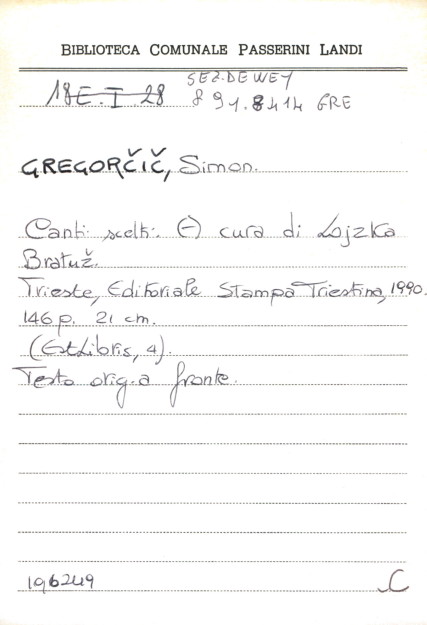 BIBLIOTECA COMUNALE PASSERINI LANDI
SEZ. DEWEY
18E.I.28 891.8414 GRE
GREGORČIČ, Simon.
Canti scelti. A cura di Lojzka
Bratuž.
Trieste, Editoriale Stampa Triestina, 1990.
146 p. 21 cm.
(EstLibris, 4).
Testo orig. a fronte.
196249 C